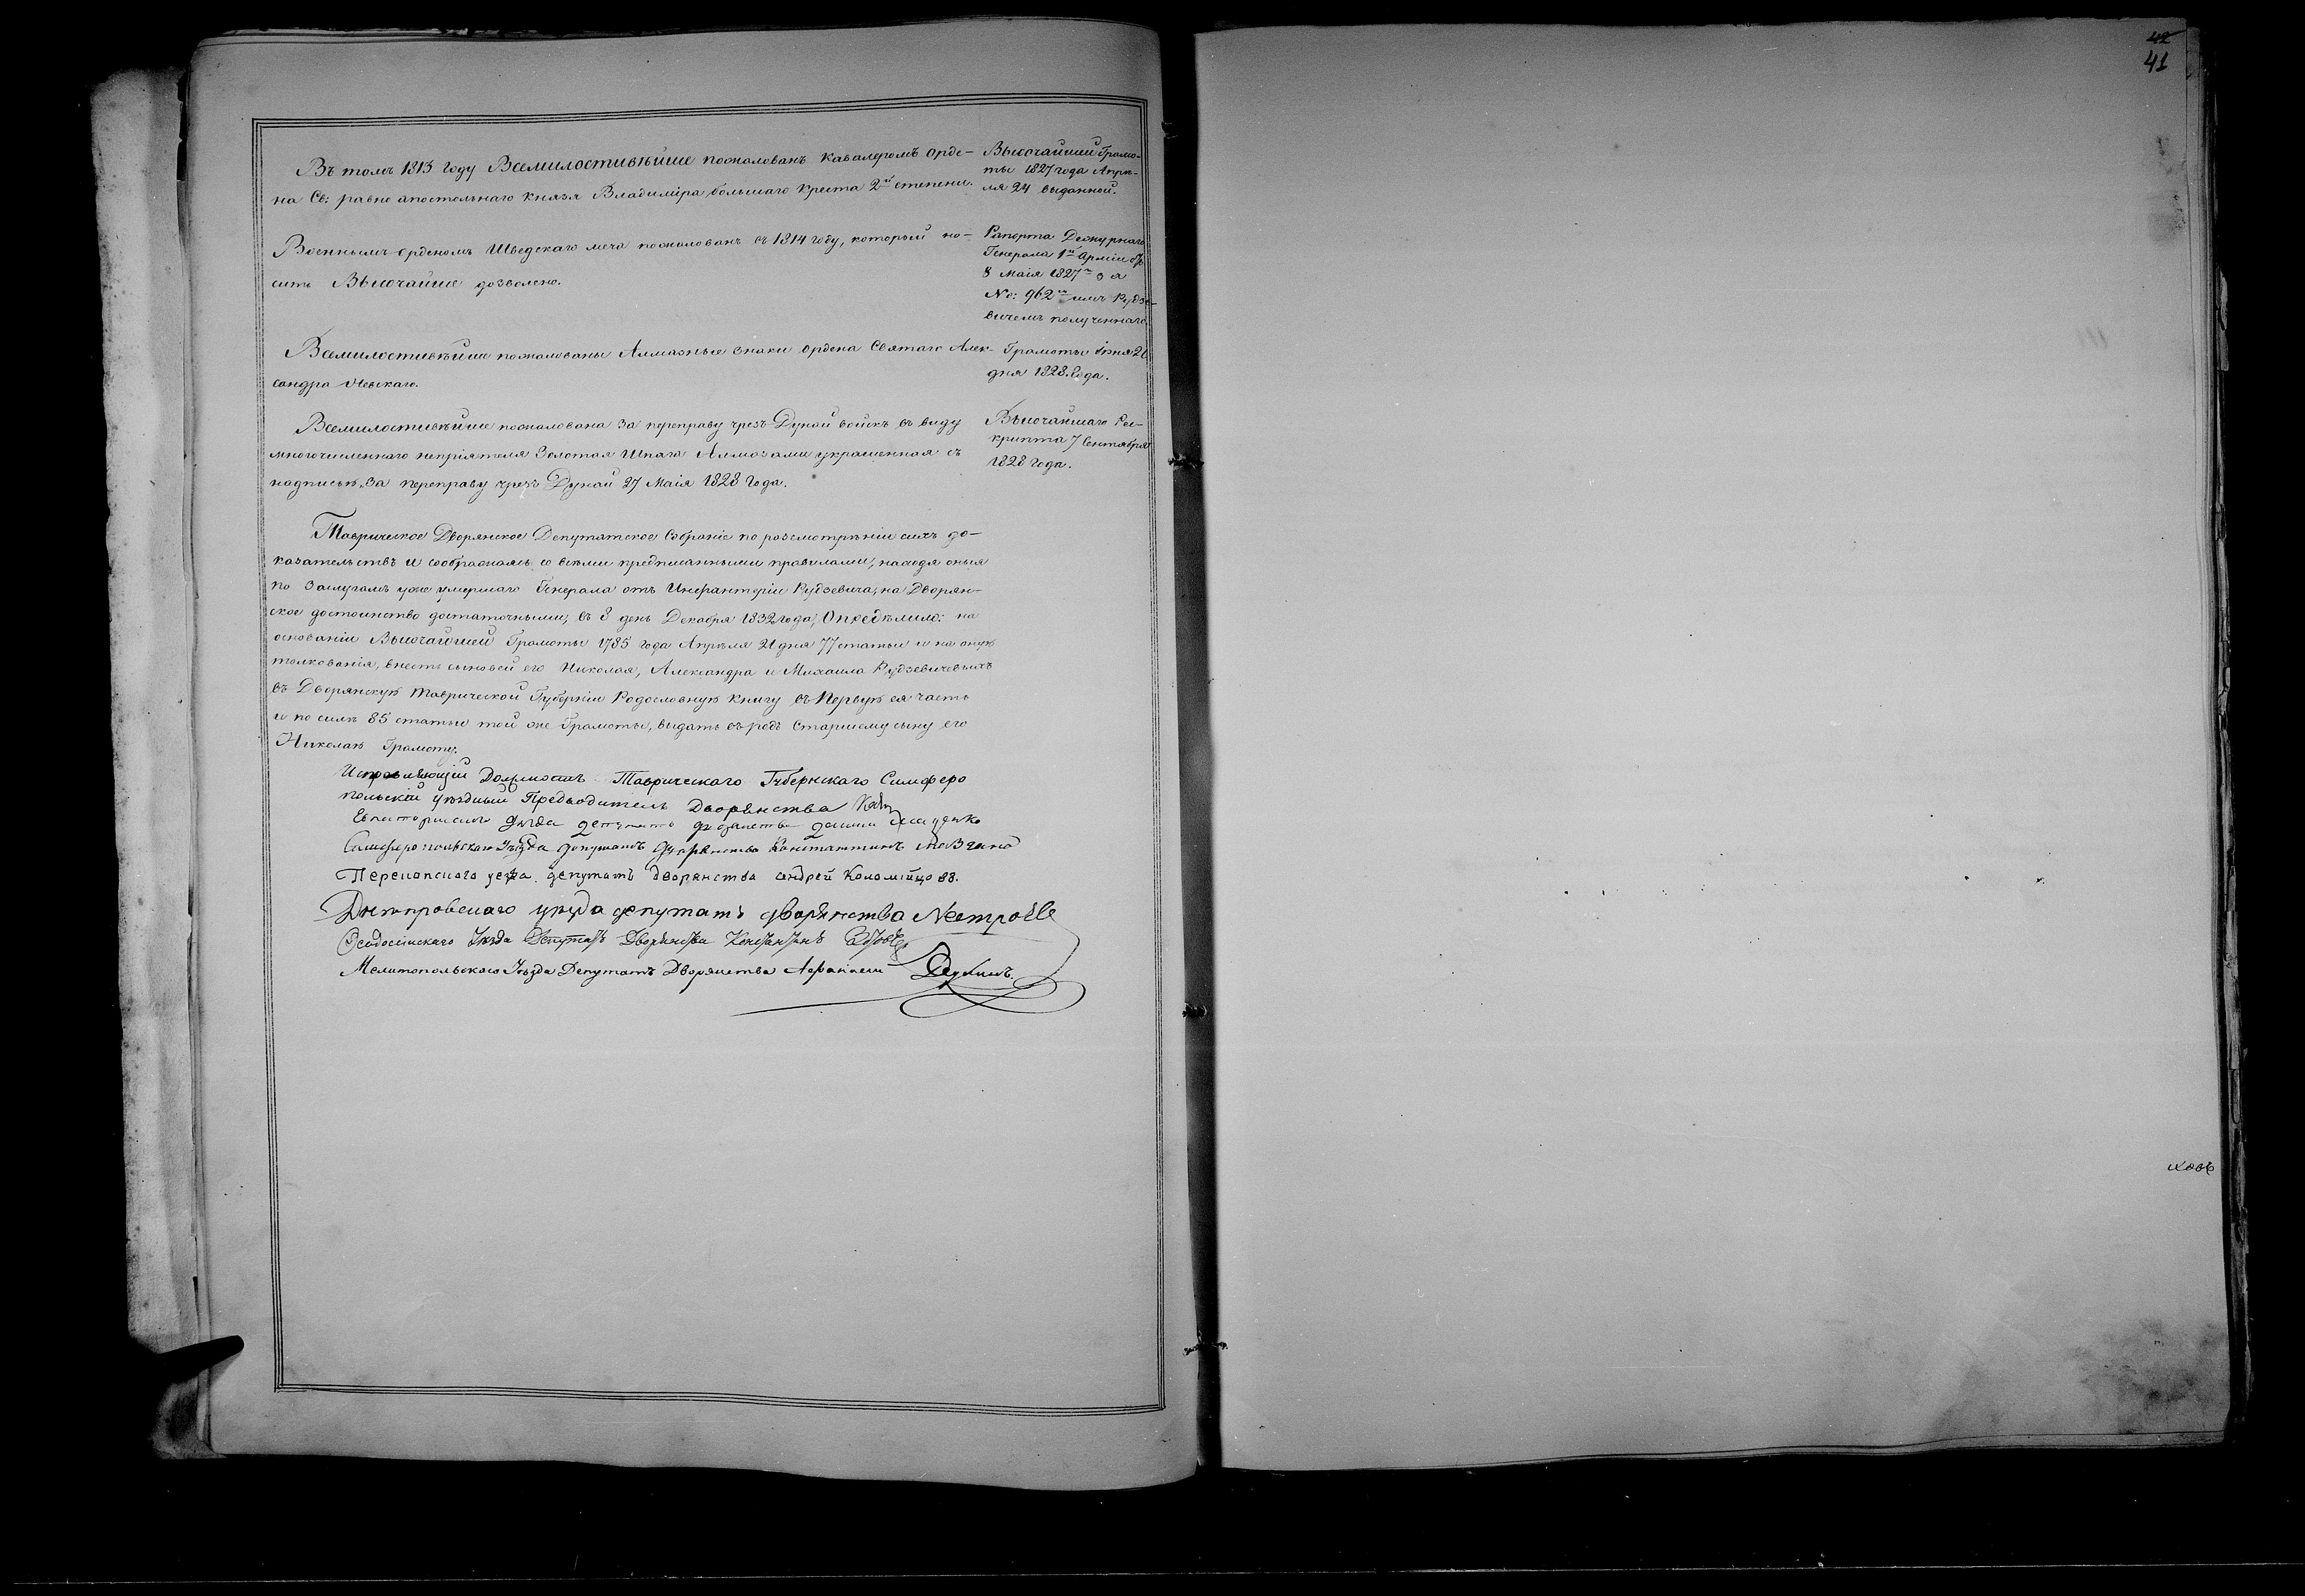 Въ томъ 1813 году Всемилостивѣйше пожалованъ Кавалеромъ Орде-
на Св: равно апостольнаго Князя Владиміра большаго Креста 2й степени.
Высочайшей Грамо-
ты 1827 года Апрѣ-
ля 24 выданной.
Военнымъ орденомъ Шведскаго меча пожалованъ въ 1814 году, который но-
сить Высочайше дозволено.
Рапорта Дежурнаго
Генерала 1й Арміи отъ
8 Маія 1827
No: 962 имъ Рудзе-
вичемъ полученнаго.
Всемилостивѣйше пожалованы Алмазные знаки ордена Святаго Алек-
сандра Невскаго.
Грамоты
дня 1828 Года.
Всемилостивѣйше пожалована За переправу чрезъ Дунай войскъ въ виду
многочисленнаго непріятеля Золотая Шпага Алмазами украшенная съ
надписью „За переправу чрезъ Дунай 27 Маія 1828 Года.
Высочайшаго Рес-
крипта 7 Сентября
1828 Года.
Таврическое Дворянское Депутатское Собраніе по разсмотрѣніи сихъ до-
казательствъ и соображаясь со всѣми предписанными правилами, находя оныя
по Заслугамъ уже умершаго Генерала отъ Инфантеріи Рудзевича, на Дворян-
ское достоинство достаточными, въ 8 день Декабря 1832 года, Опредѣлило: на
основаніи Высочайшей Грамоты 1785 года Апрѣля 21 дня 77 статьи и на оную
толкованія, внесть сыновей его Николая, Александра и Михаила Рудзевичевыхъ
въ Дворянскую Таврической Губерніи Родословную Книгу въ Первую ея часть
и по силѣ 85 статьи той же Грамоты, выдать въ родъ Старшему сыну его
Николаю Грамоту.
Исправляющій Должность Таврическаго Губернскаго Симферо
польскій уѣздный Предводитель Дворянства
уѣзда депутатъ дворянства
Симферопольскаго Уѣзда депутатъ дворянства Константинъ
Перекопскаго уезда депутатъ дворянства андрей Коломійцовъ.
Днѣпровскаго уѣзда депутатъ дворянства
Феодосійскаго Уѣзда Депутатъ Дворянства
Мелитопольскаго Уѣзда Депутатъ Дворянства Афанасий
42
41
ковъ